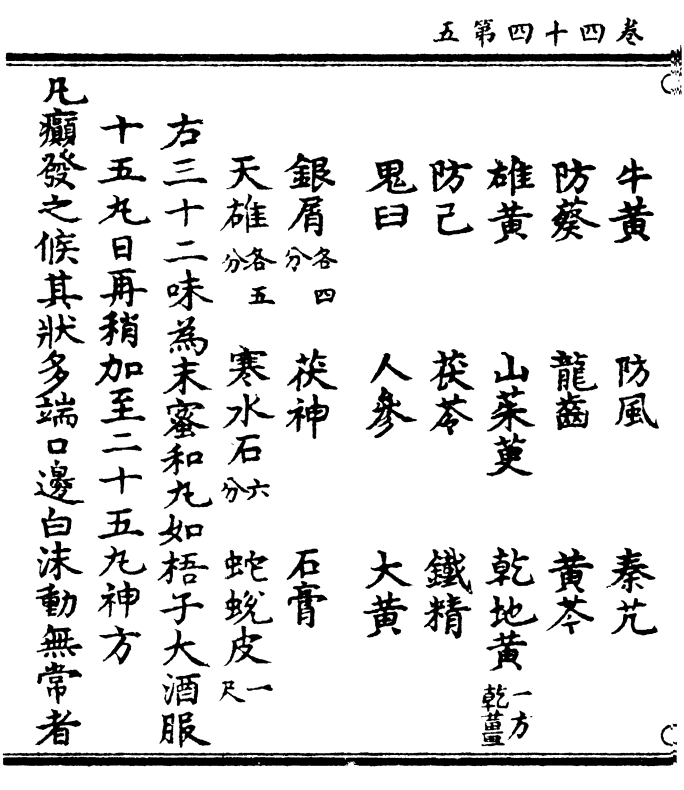 卷四十四第五
牛黃 防風 秦艽
防葵 龍齒 黃芩
雄黃 山茱萸 乾地黃 一方乾薑
防己 茯苓 鐵精
鬼臼 人參 大黃
銀屑 各四分 茯神 石膏
天雄 各五分 寒水石 六分 蛇蛻皮 一尺
右三十二味為末蜜和丸如梧子大酒服
十五丸日再稍加至二十五丸神方
凡癲發之候其狀多端口邊白沫動無常者